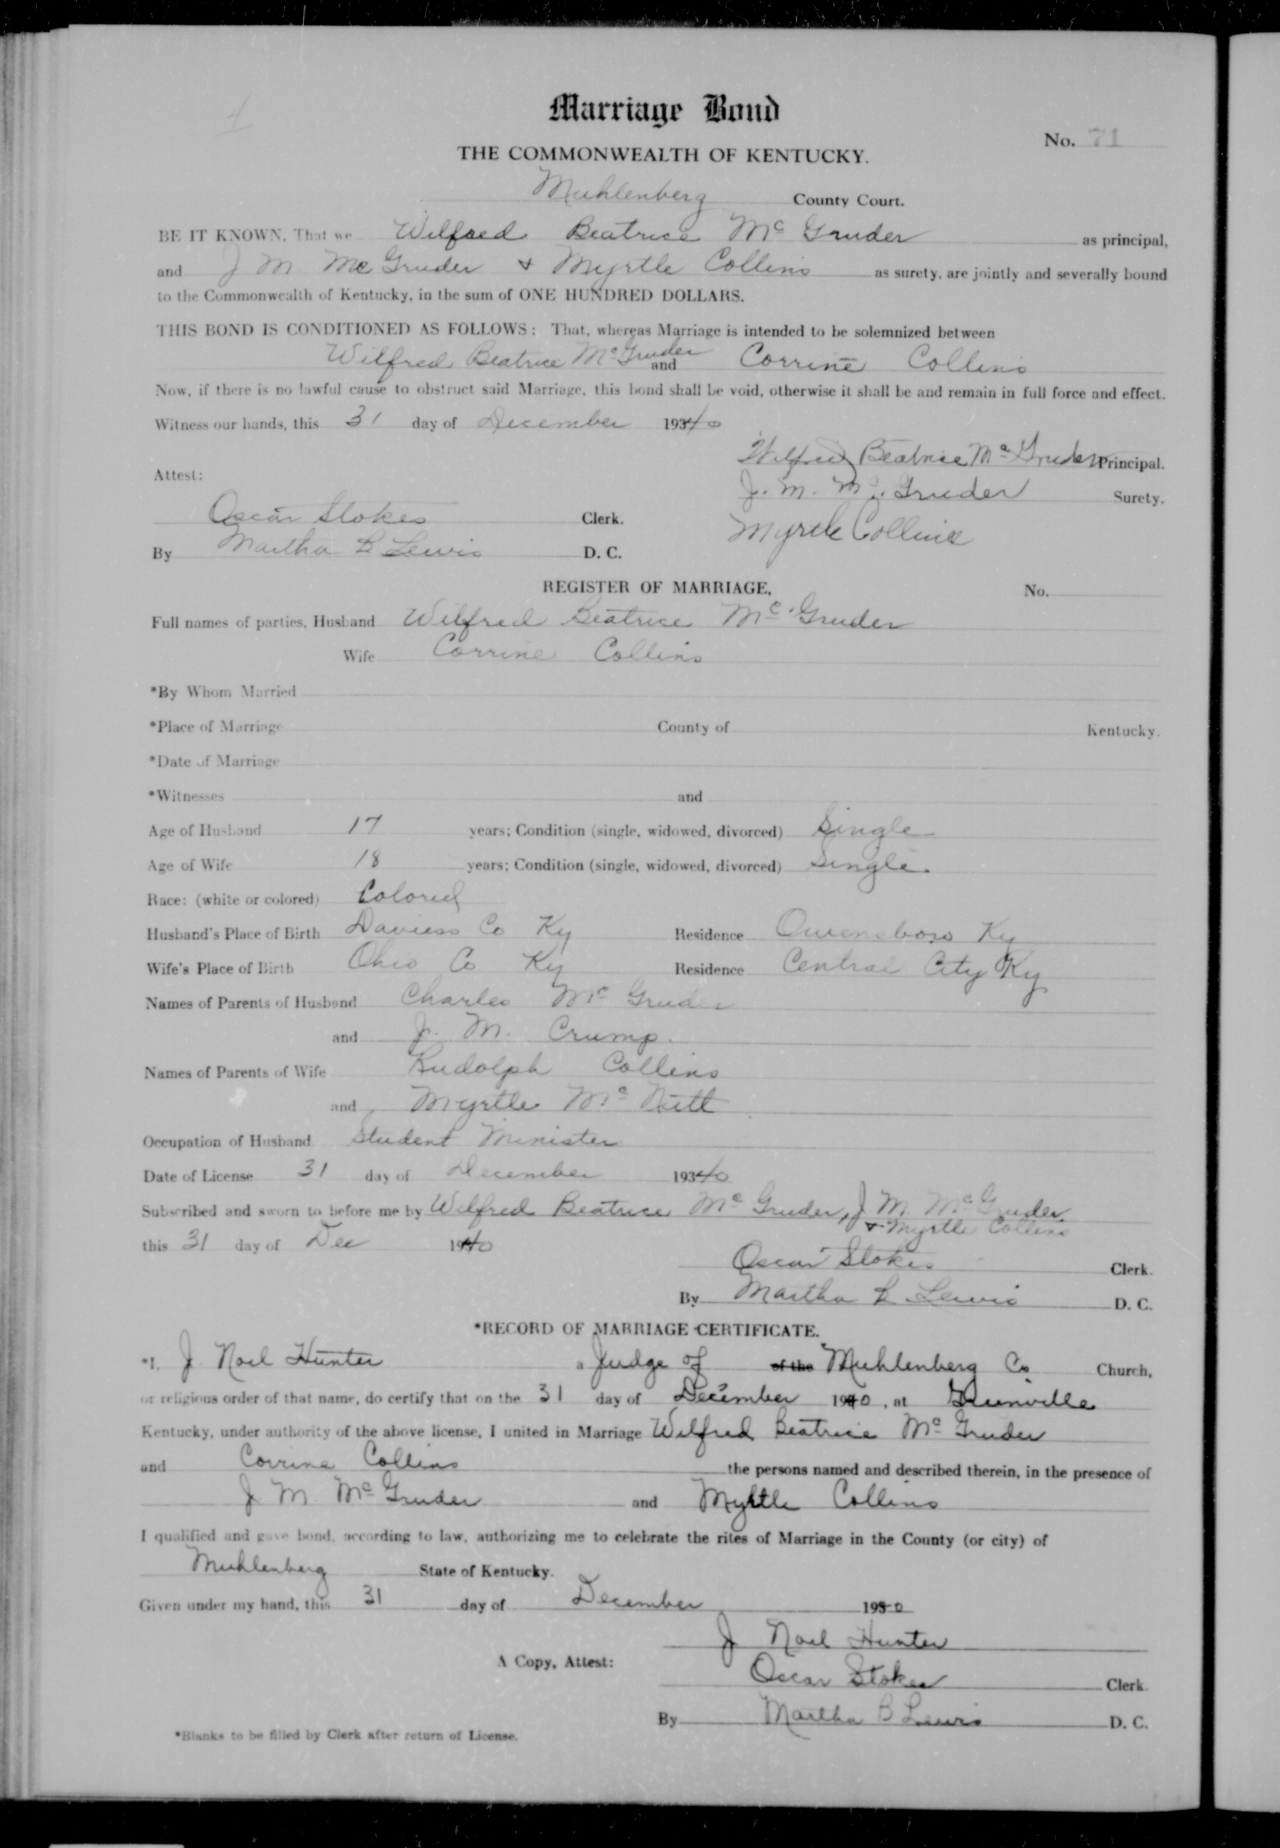 Marriage Bond
No. 71
THE COMMONWEALTH OF KENTUCKY.
Muhlenberg County Court.
BE IT KNOWN, That we Wilfred Beatrice Mc Gruder as principal,
and J M Mc Gruder & Myrtle Collins as surety, are jointly and severally bound
to the Commonwealth of Kentucky, in the sum of ONE HUNDRED DOLLARS.
THIS BOND IS CONDITIONED AS FOLLOWS: That, whereas Marriage is intended to be solemnized between
Wilfred Beatrice McGruder and Corrine Collins
Now, if there is no lawful cause to obstruct said Marriage, this bond shall be void, otherwise it shall be and remain in full force and effect.
Witness our hands, this 31 day of December 1940
Wilfred Beatrice McGruder Principal.
Attest:
J. M. Mc. Gruder Surety.
Oscar Stokes Clerk.
Myrtle Collins
By Martha B Lewis D. C.
REGISTER OF MARRIAGE, No.
Full names of parties, Husband Wilfred Beatrice Mc Gruder
Wife Corrine Collins
*By Whom Married
*Place of Marriage County of Kentucky.
*Date of Marriage
*Witnesses and
Age of Husband 17 years; Condition (single, widowed, divorced) Single
Age of Wife 18 years; Condition (single, widowed, divorced) Single.
Race: (white or colored) Colored
Husband's Place of Birth Daviess Co Ky Residence Owensboro Ky
Wife's Place of Birth Ohio Co Ky Residence Central City Ky
Names of Parents of Husband Charles Mc Gruder
and J. M. Crump.
Names of Parents of Wife Rudolph Collins
and Myrtle Mc Nutt
Occupation of Husband Student Minister
Date of License 31 day of December 1940
Subscribed and sworn to before me by Wilfred Beatrice Mc Gruder, J M McGruder
& Myrtle Collins
this 31 day of Dec 1940
Oscar Stokes Clerk.
By Martha B Lewis D. C.
*RECORD OF MARRIAGE CERTIFICATE.
*I, J. Noel Hunter a Judge of of the Muhlenberg Co Church,
or religious order of that name, do certify that on the 31 day of December 1940, at Greenville
Kentucky, under authority of the above license, I united in Marriage Wilfred Beatrice Mc Gruder
and Corrine Collins the persons named and described therein, in the presence of
J M McGruder and Myrtle Collins
I qualified and gave bond, according to law, authorizing me to celebrate the rites of Marriage in the County (or city) of
Muhlenberg State of Kentucky.
Given under my hand, this 31 day of December 1940
J Noel Hunter
A Copy, Attest:
Oscar Stokes Clerk
By Martha B Lewis D. C.
*Blanks to be filled by Clerk after return of License.